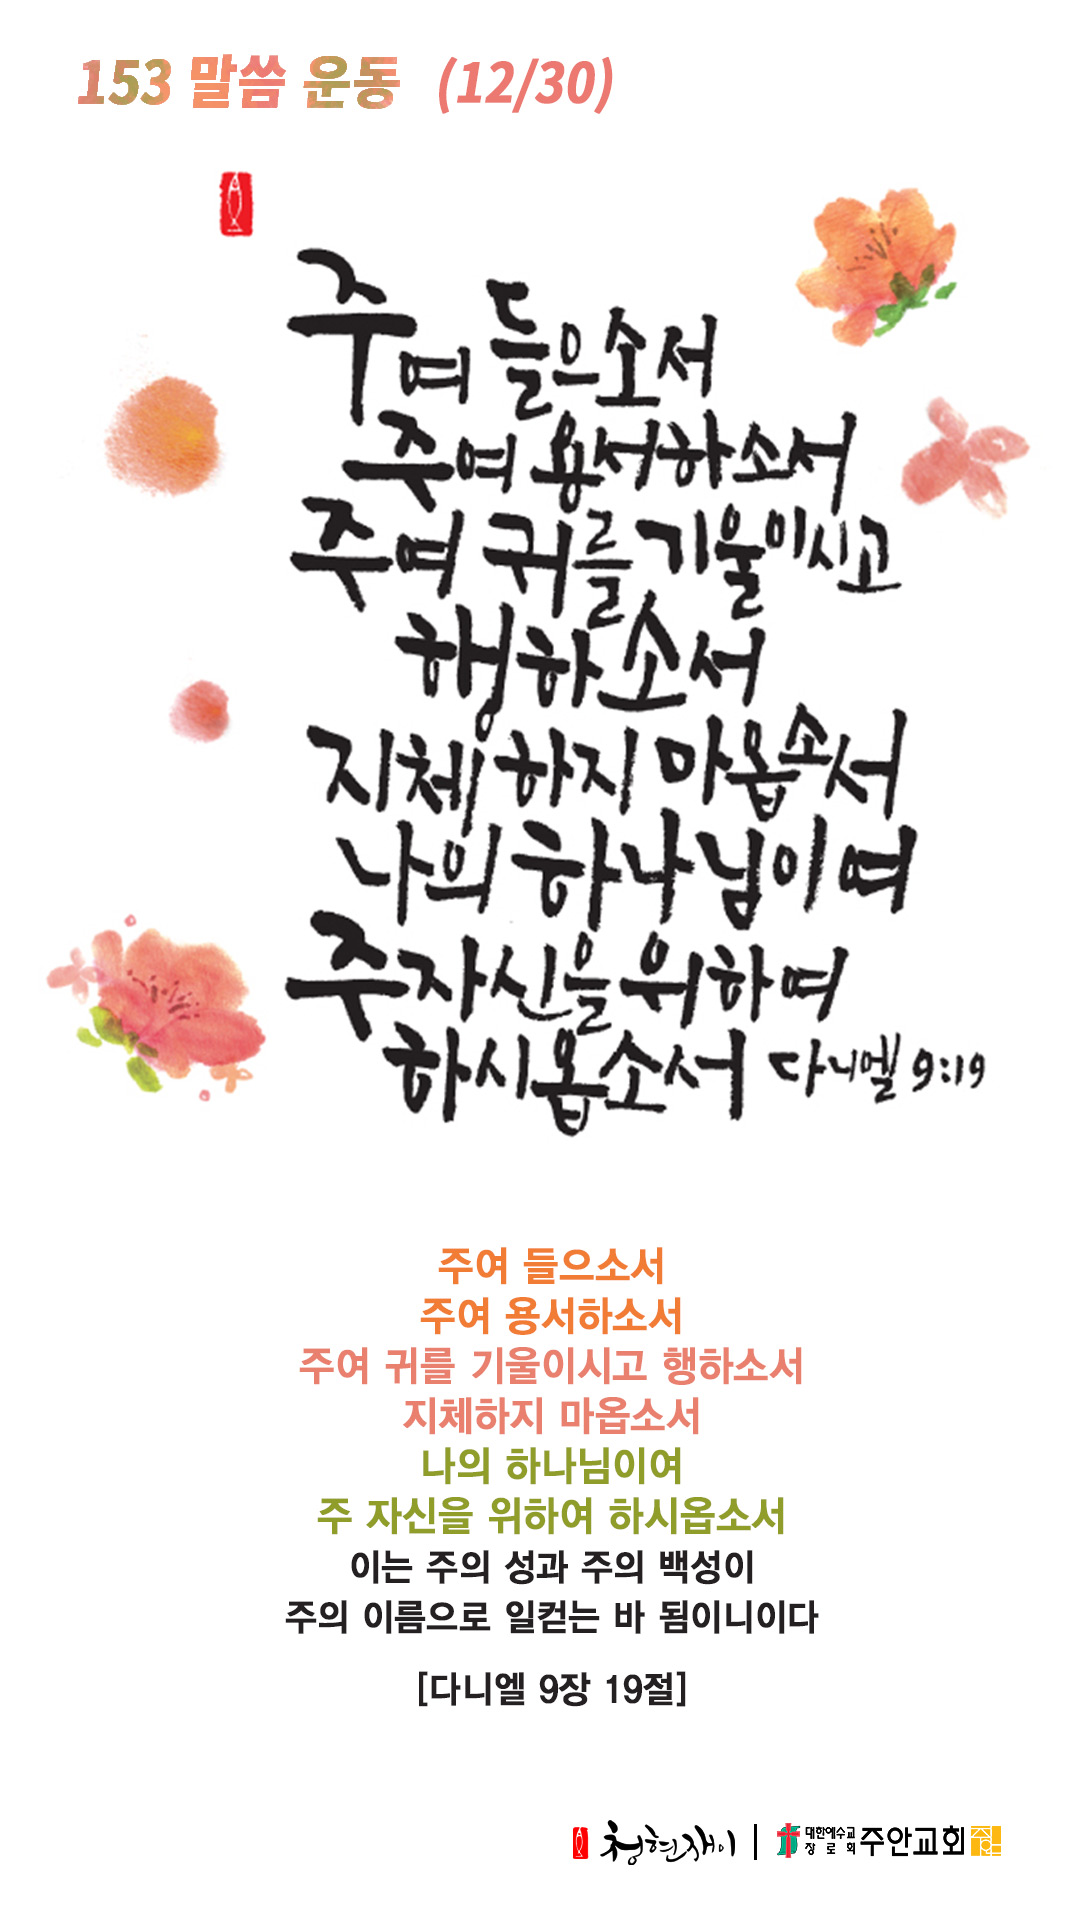 153 말씀 운동 (12/30)
주여 들으소서
주여 용서하소서
주여 귀를 기울이시고
행하소서
지체하지 마옵소서
나의 하나님이여
주 자신을 위하여
하시옵소서 다니엘 9:19
주여 들으소서
주여 용서하소서
주여 귀를 기울이시고 행하소서
지체하지 마옵소서
나의 하나님이여
주 자신을 위하여 하시옵소서
이는 주의 성과 주의 백성이
주의 이름으로 일컫는 바 됨이니이다
[다니엘 9장 19절]
청현재이 | 대한예수교 장로회 주안교회